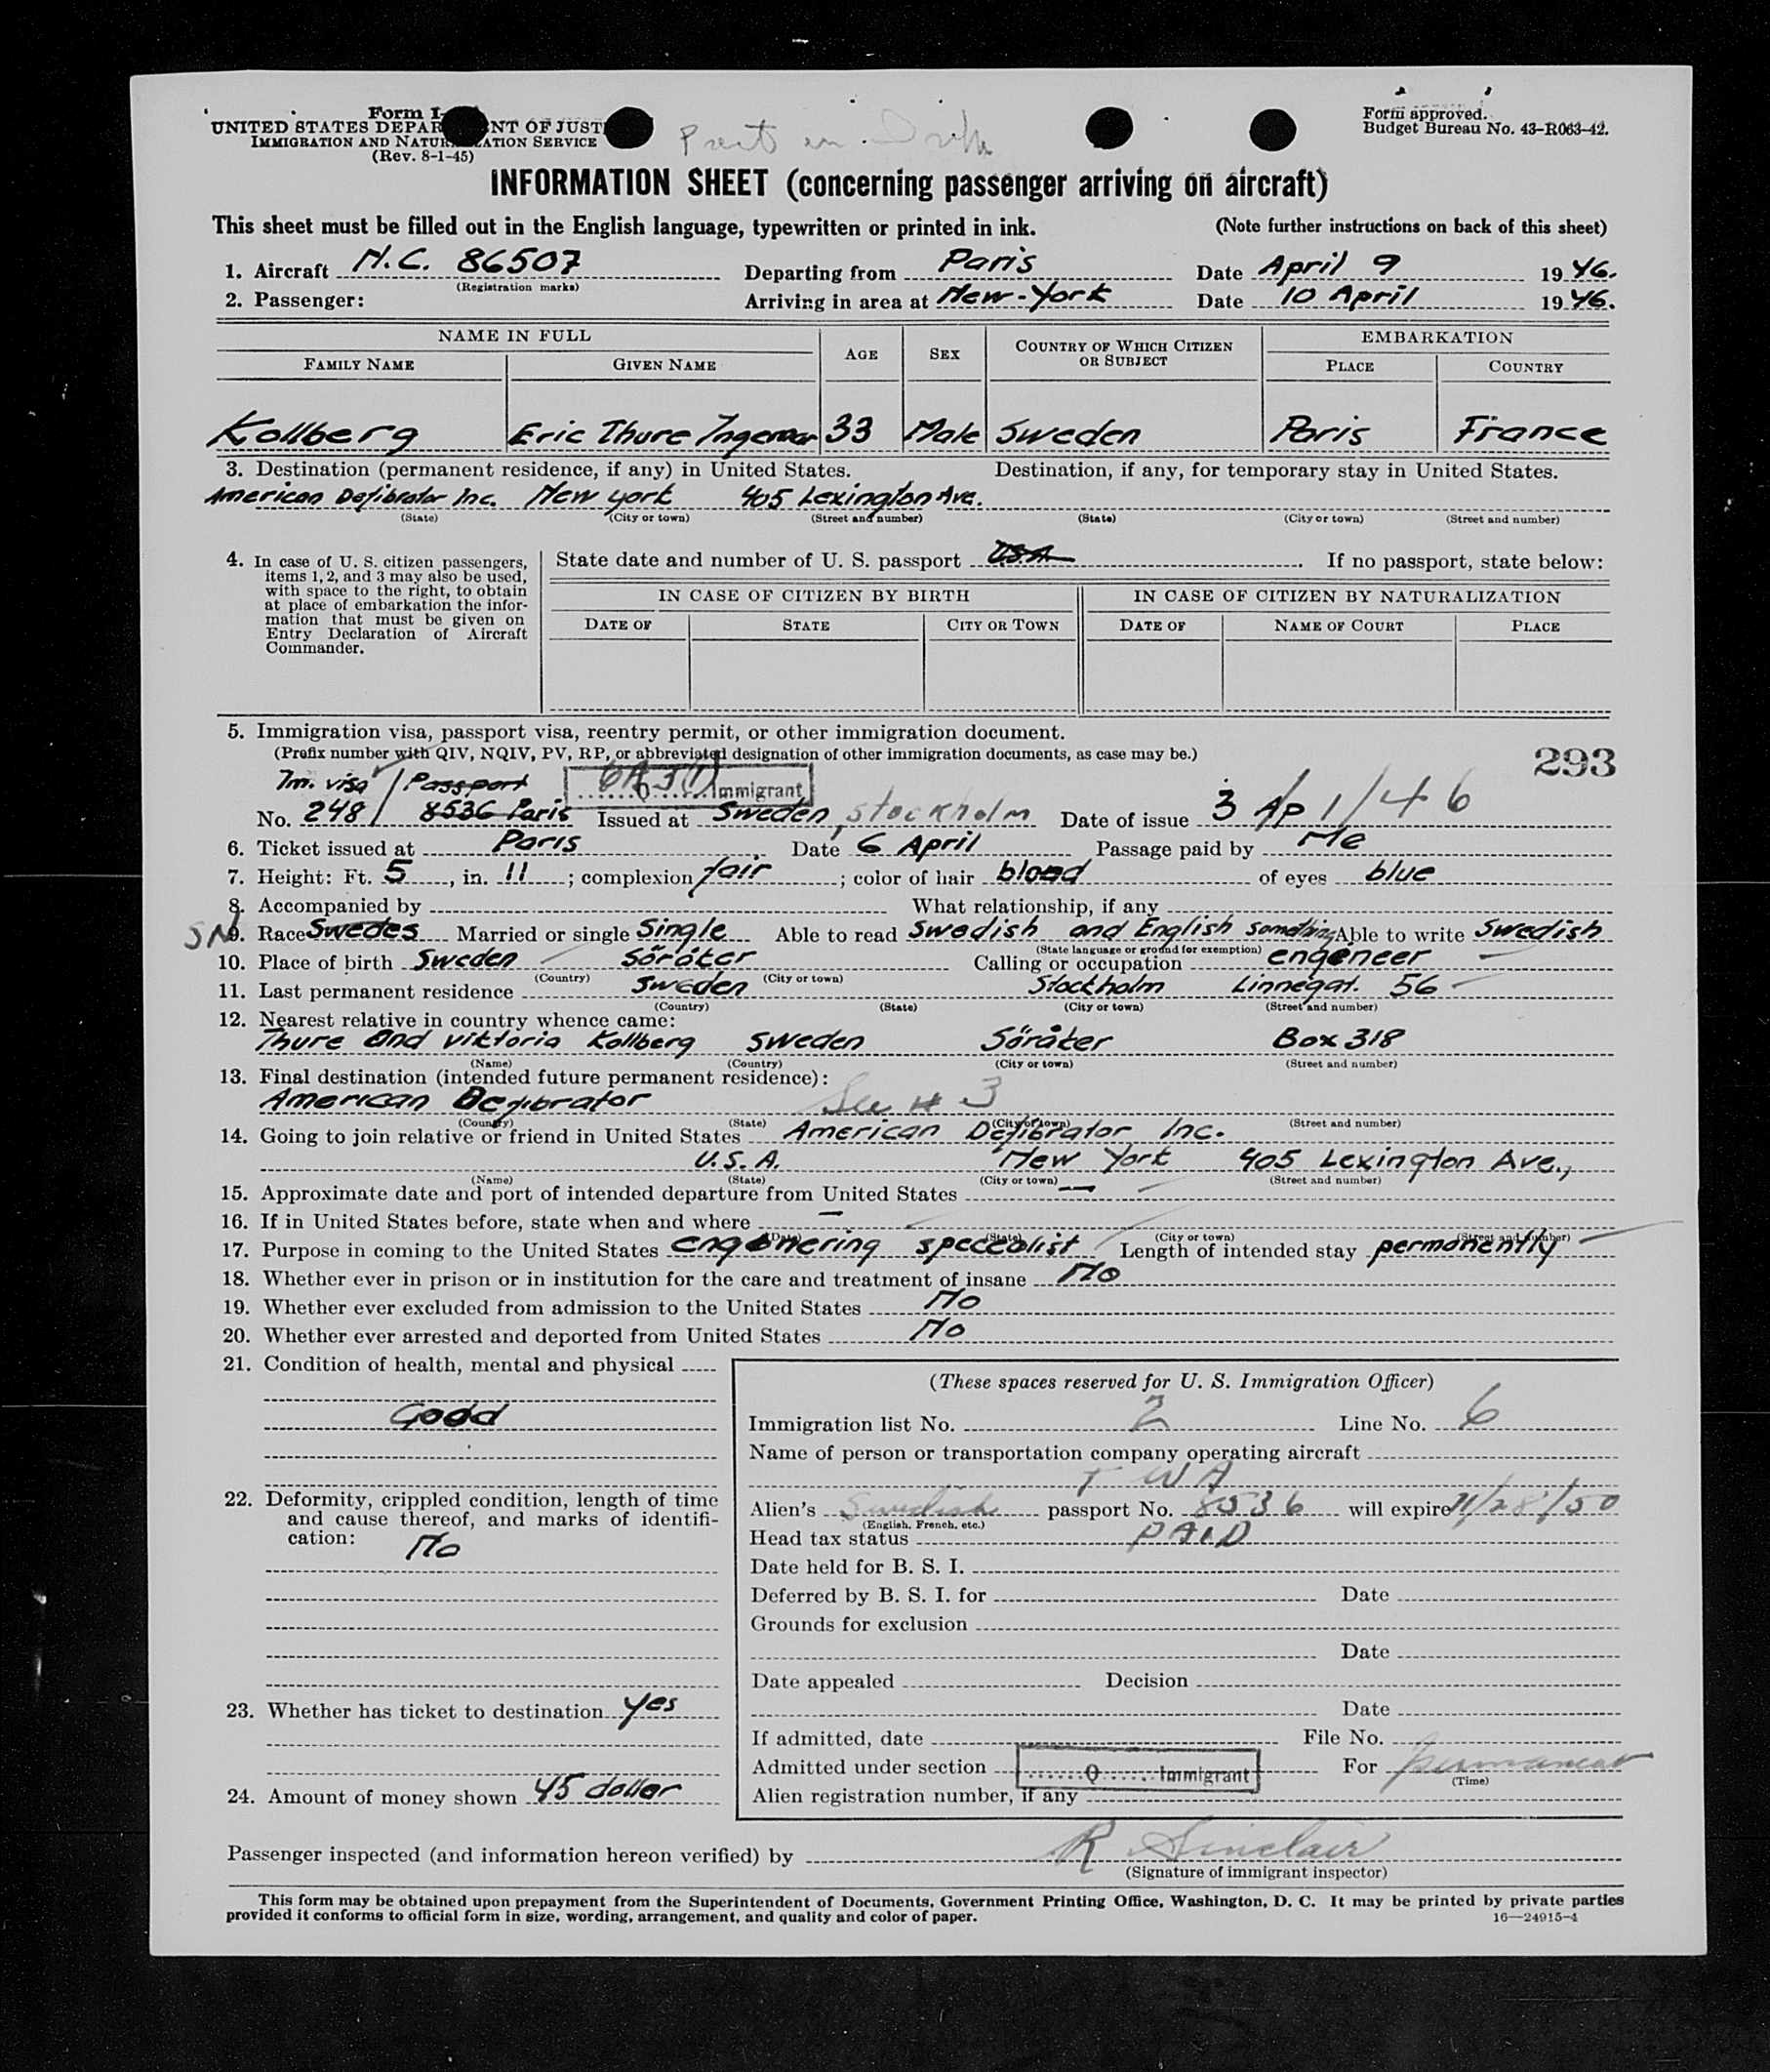 Form I-
UNITED STATES DEPAR NT OF JUST
IMMIGRATION AND NATUR ATION SERVICE
(Rev. 8-1-45)
Form approved.
Budget Bureau No. 43-R063-42.
INFORMATION SHEET (concerning passenger arriving on aircraft)
This sheet must be filled out in the English language, typewritten or printed in ink. (Note further instructions on back of this sheet)
1. Aircraft N.C. 86507 Departing from Paris Date April 9 1946.
(Registration marks)
2. Passenger: Arriving in area at New-York Date 10 April 1946.
NAME IN FULL AGE SEX COUNTRY OF WHICH CITIZEN OR SUBJECT EMBARKATION
FAMILY NAME GIVEN NAME PLACE COUNTRY
Kollberg Eric Thure Ingemar 33 Male Sweden Paris France
3. Destination (permanent residence, if any) in United States. Destination, if any, for temporary stay in United States.
American Defibrator Inc. New york 405 Lexington Ave.
(State) (City or town) (Street and number) (State) (City or town) (Street and number)
4. In case of U. S. citizen passengers,
items 1, 2, and 3 may also be used,
with space to the right, to obtain
at place of embarkation the infor-
mation that must be given on
Entry Declaration of Aircraft
Commander.
State date and number of U. S. passport USA. If no passport, state below:
IN CASE OF CITIZEN BY BIRTH IN CASE OF CITIZEN BY NATURALIZATION
DATE OF STATE CITY OR TOWN DATE OF NAME OF COURT PLACE
5. Immigration visa, passport visa, reentry permit, or other immigration document.
(Prefix number with QIV, NQIV, PV, RP, or abbreviated designation of other immigration documents, as case may be.)
293
Im. visa / Passport Q Immigrant
No. 248 / 8536 Paris Issued at Sweden, Stockholm Date of issue 3 Ap 1/46
6. Ticket issued at Paris Date 6 April Passage paid by Me
7. Height: Ft. 5, in. 11; complexion fair; color of hair blond of eyes blue
8. Accompanied by What relationship, if any
SN 9. Race Swedes Married or single Single Able to read Swedish and English something Able to write Swedish
(State language or ground for exemption)
10. Place of birth Sweden Söråker Calling or occupation engeneer
(Country) (City or town)
11. Last permanent residence Sweden Stockholm Linnégat. 56
(Country) (State) (City or town) (Street and number)
12. Nearest relative in country whence came:
Thure and Viktoria Kollberg Sweden Söråker Box 318
(Name) (Country) (City or town) (Street and number)
13. Final destination (intended future permanent residence):
American Defibrator See # 3
(Country) (State) (City or town) (Street and number)
14. Going to join relative or friend in United States American Defibrator Inc.
U.S.A. New York 405 Lexington Ave.,
(Name) (State) (City or town) (Street and number)
15. Approximate date and port of intended departure from United States —
16. If in United States before, state when and where —
(Date) (State) (City or town) (Street and number)
17. Purpose in coming to the United States engenering specealist Length of intended stay permanently
18. Whether ever in prison or in institution for the care and treatment of insane No
19. Whether ever excluded from admission to the United States No
20. Whether ever arrested and deported from United States No
21. Condition of health, mental and physical
Good
22. Deformity, crippled condition, length of time
and cause thereof, and marks of identifi-
cation: No
23. Whether has ticket to destination yes
24. Amount of money shown 45 dollar
(These spaces reserved for U. S. Immigration Officer)
Immigration list No. 2 Line No. 6
Name of person or transportation company operating aircraft
T W A
Alien's Swedish passport No. 8536 will expire 11/28/50
(English, French, etc.)
Head tax status PAID
Date held for B. S. I.
Deferred by B. S. I. for Date
Grounds for exclusion
Date
Date appealed Decision
Date
If admitted, date File No.
Admitted under section Q Immigrant For permanent
(Time)
Alien registration number, if any
Passenger inspected (and information hereon verified) by R Sinclair
(Signature of immigrant inspector)
This form may be obtained upon prepayment from the Superintendent of Documents, Government Printing Office, Washington, D. C. It may be printed by private parties
provided it conforms to official form in size, wording, arrangement, and quality and color of paper. 16—24915-4